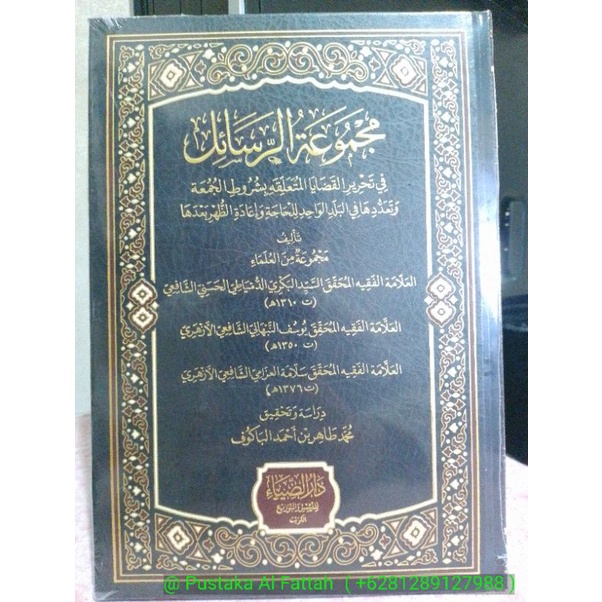 مَجْمُوعَةُ الرَّسَائِل
فِي تَحْرِيرِ القَضَايَا المُتَعَلِّقَةِ بِشُرُوطِ الجُمُعَةِ
وَتَعَدُّدِهَا فِي البَلَدِ الوَاحِدِ لِلحَاجَةِ وَإِعَادَةِ الظُّهْرِ بَعْدَهَا
تَأليفُ
مَجْمُوعَةٌ مِنَ العُلَمَاءِ
العَلَّامَة الفَقِيه المُحَقِّق السَّيِّد البَكْرِي الدِّمْيَاطِي الحَسَنِي الشَّافِعِي
(ت ١٣١٠هـ)
العَلَّامَة الفَقِيه المُحَقِّق يُوسُف النَّبْهَانِي الشَّافِعِي الأَزْهَرِي
(ت ١٣٥٠هـ)
العَلَّامَة الفَقِيه المُحَقِّق سَلَامَة العَزَّامِي الشَّافِعِي الأَزْهَرِي
(ت ١٣٧٦هـ)
دِرَاسَة وَتَحْقِيق
مُحَمَّد طَاهِر بن أَحْمَد البَاكُوف
دَارُ الضِّيَاءِ
لِلنَّشْرِ وَالتَّوْزِيعِ
الكويت
@ Pustaka Al Fattah ( +6281289127988 )